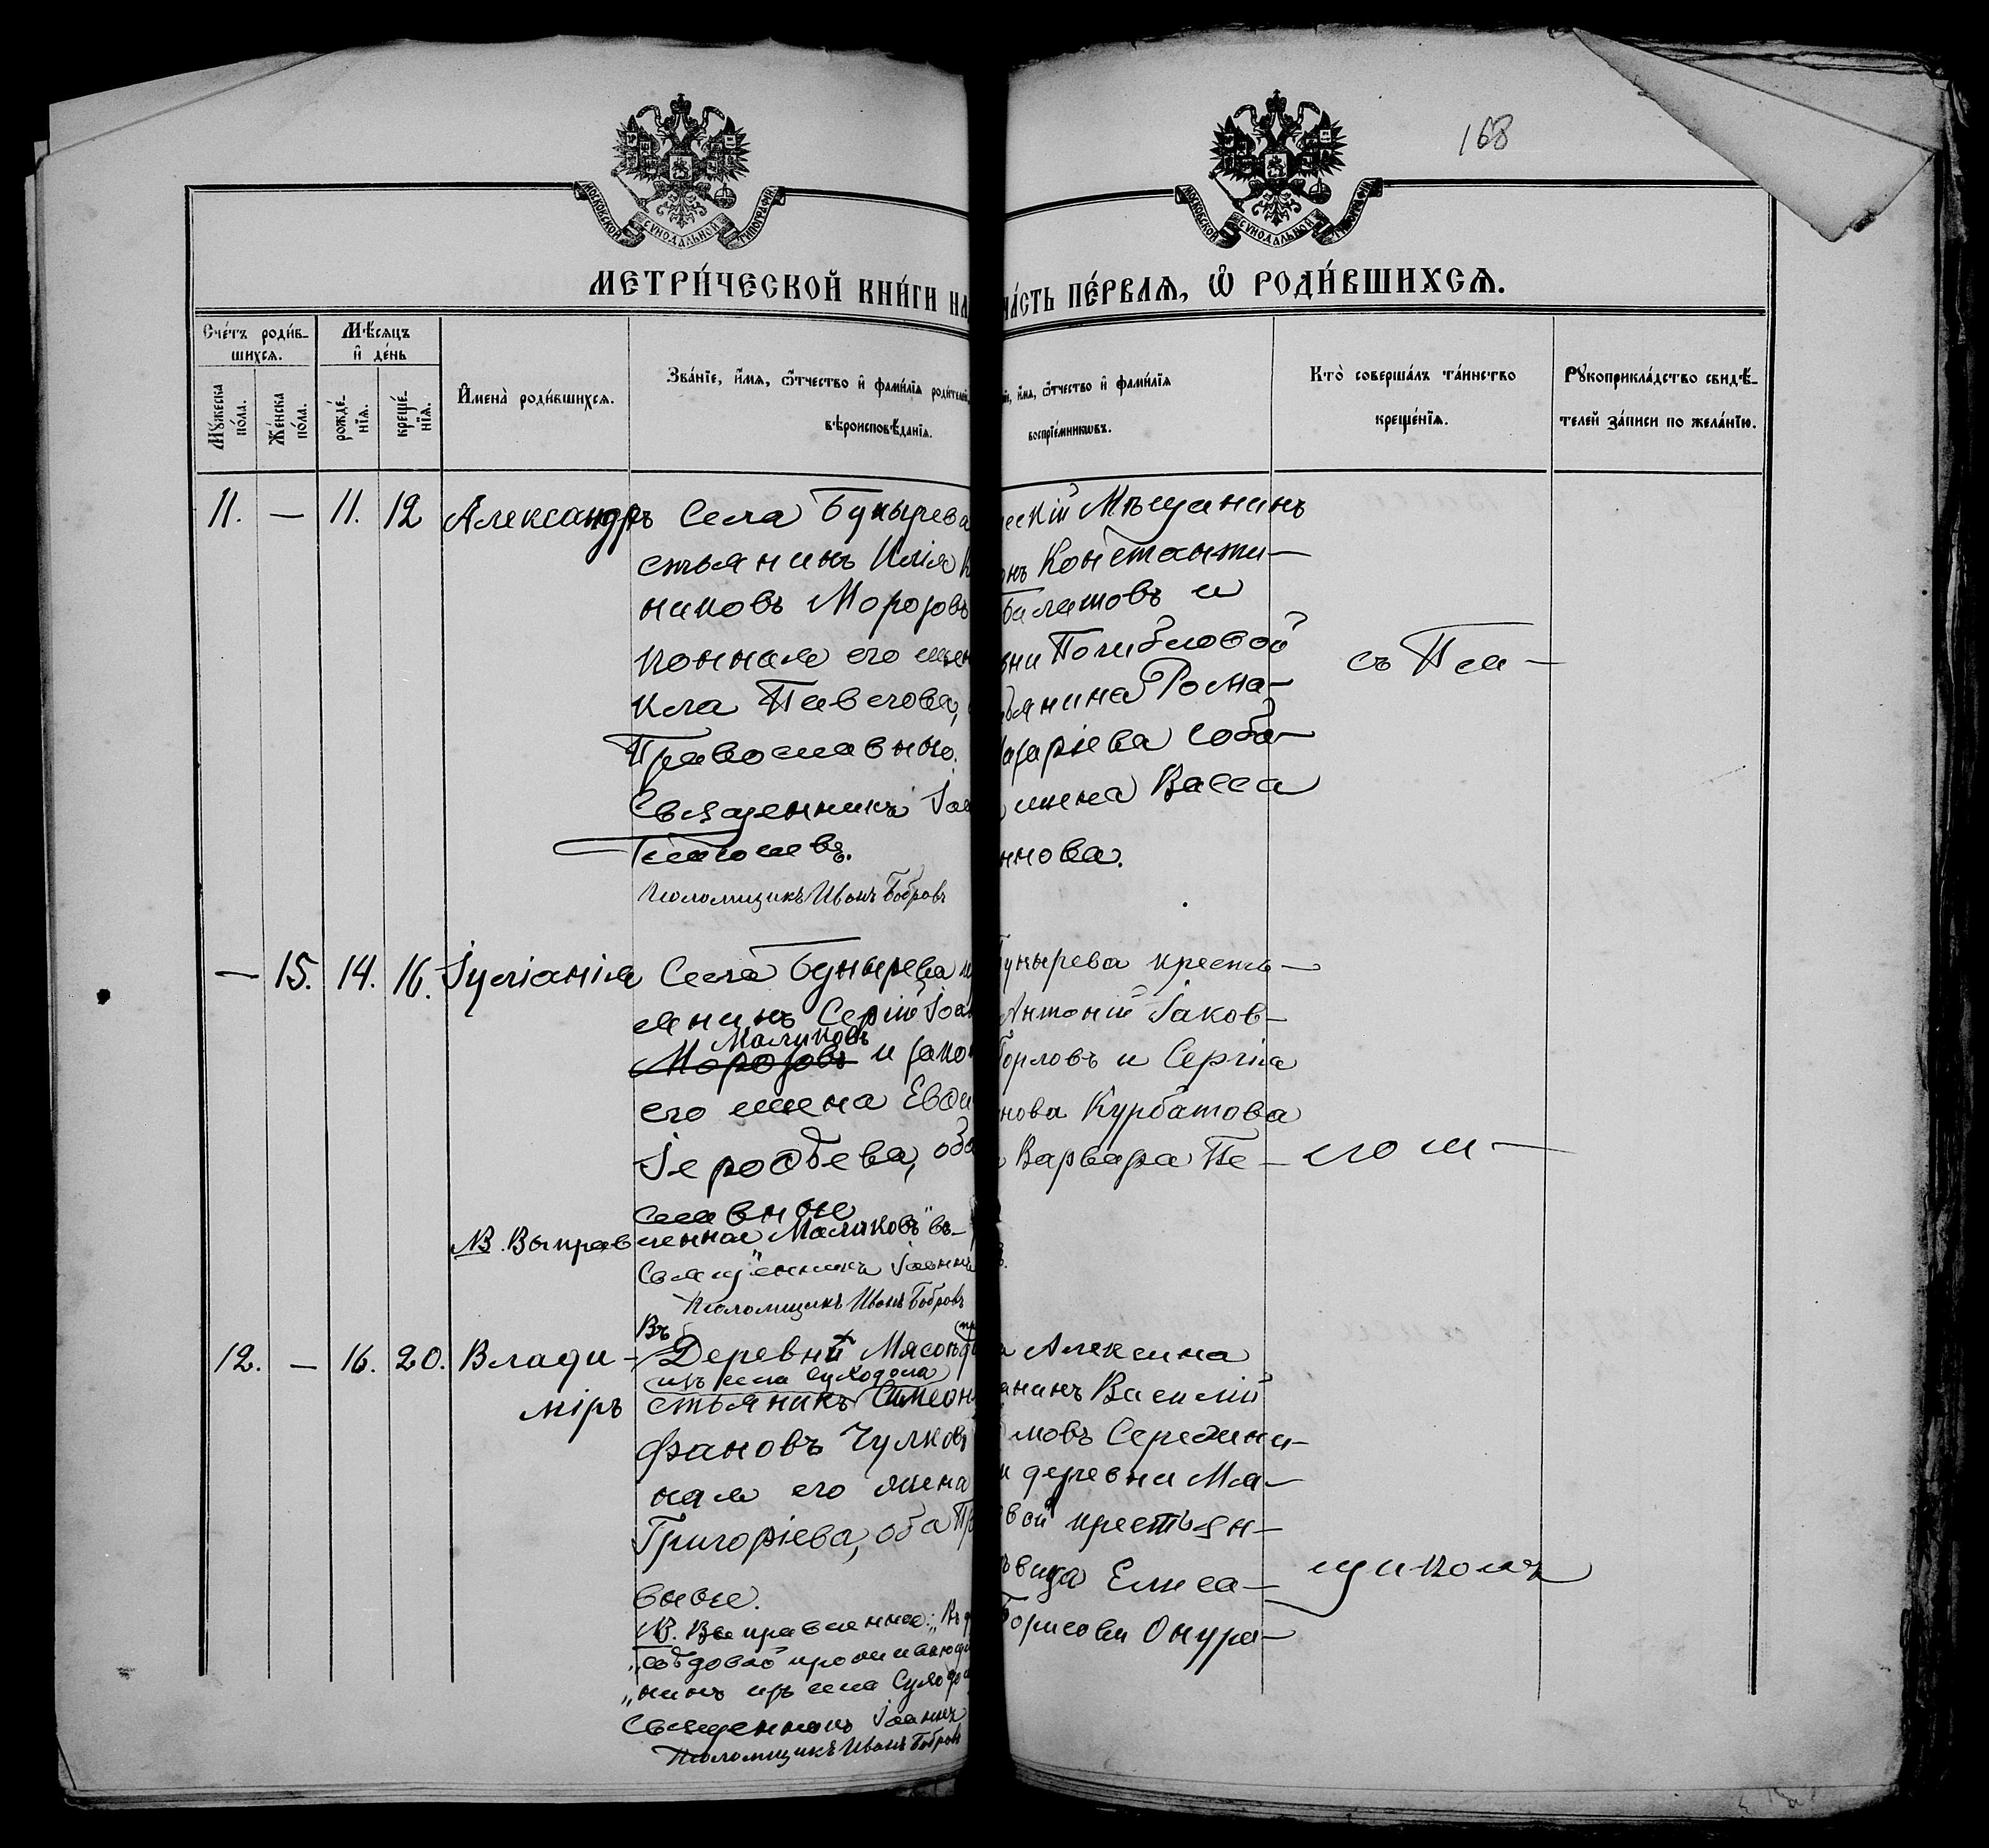 168
МОСКОВСКОЙ СУНОДАЛЬНОЙ ТИПОГРАФІИ
МОСКОВСКОЙ СУНОДАЛЬНОЙ ТИПОГРАФІИ
МЕТРИ́ЧЕСКОЙ КНИ́ГИ НА
ЧА́СТЬ ПЕ́РВАѦ, Ѽ РОДИ́ВШИХСѦ.
Сче́тъ роди́в-
шихсѧ.
Мꙋ́жеска по́ла.
Же́нска по́ла.
Мѣ́сѧцъ
и҆ де́нь
рожде́-
нїѧ.
креще́-
нїѧ.
И҆мена̀ роди́вшихсѧ.
Зва́нїе, и҆́мѧ, ѻ҆́тчество и҆ фами́лїѧ роди́телей,
вѣроисповѣ́данїѧ.
и҆́мѧ, ѻ҆́тчество и҆ фами́лїѧ
воспрїе́мникѡвъ.
Кто̀ соверша́лъ та́инство
креще́нїѧ.
Рꙋкоприкла́дство свидѣ́-
телей за́писи по жела́нїю.
11. — 11. 12 Александръ Села Бунырева
стьянинъ Илія
никовъ Морозовъ
конная его жен
кла Павлова,
Православные.
Священникъ Іоа
Псаломщикъ Иванъ Бобровъ
ескій Мѣщанинъ
онъ Константи—
Балатовъ и
вни Погибловой
ьянина Рома—
азаріева соба—
жена Васса
ннова.
съ Пса—
— 15. 14. 16. Іуліанія Села Бунырева
янинъ Сергій Іоан
Маликовъ
Морозовъ и зако
его жена Евдо
Іероѳеева, оба
славные
NB. Выправленное "Маликовъ" вѣ—
Священникъ Іоаннъ
Псаломщикъ Иванъ Бобровъ
Бунырева кресть—
Антоній Іаков—
Горловъ и Сергіа
нова Курбатова
Варвара Пе—
лом—
12. — 16. 20. Влади-
міръ
Въ
Деревни Мясоѣд
изъ села Суходола
стьянинъ Симеон
фановъ Чулковъ
ная его жена
Григоріева, оба Пр
вные.
NB. Выправленное: "Въ д
"соѣдовой проживающ
"нинъ изъ села Суходо
Священникъ Іоаннъ
Псаломщикъ Иванъ Бобровъ
а Алексина
анинъ Василій
мовъ Середини—
и деревни Мя—
вой крестьян—
ѣвица Елиса—
Борисова Онура—
щикомъ